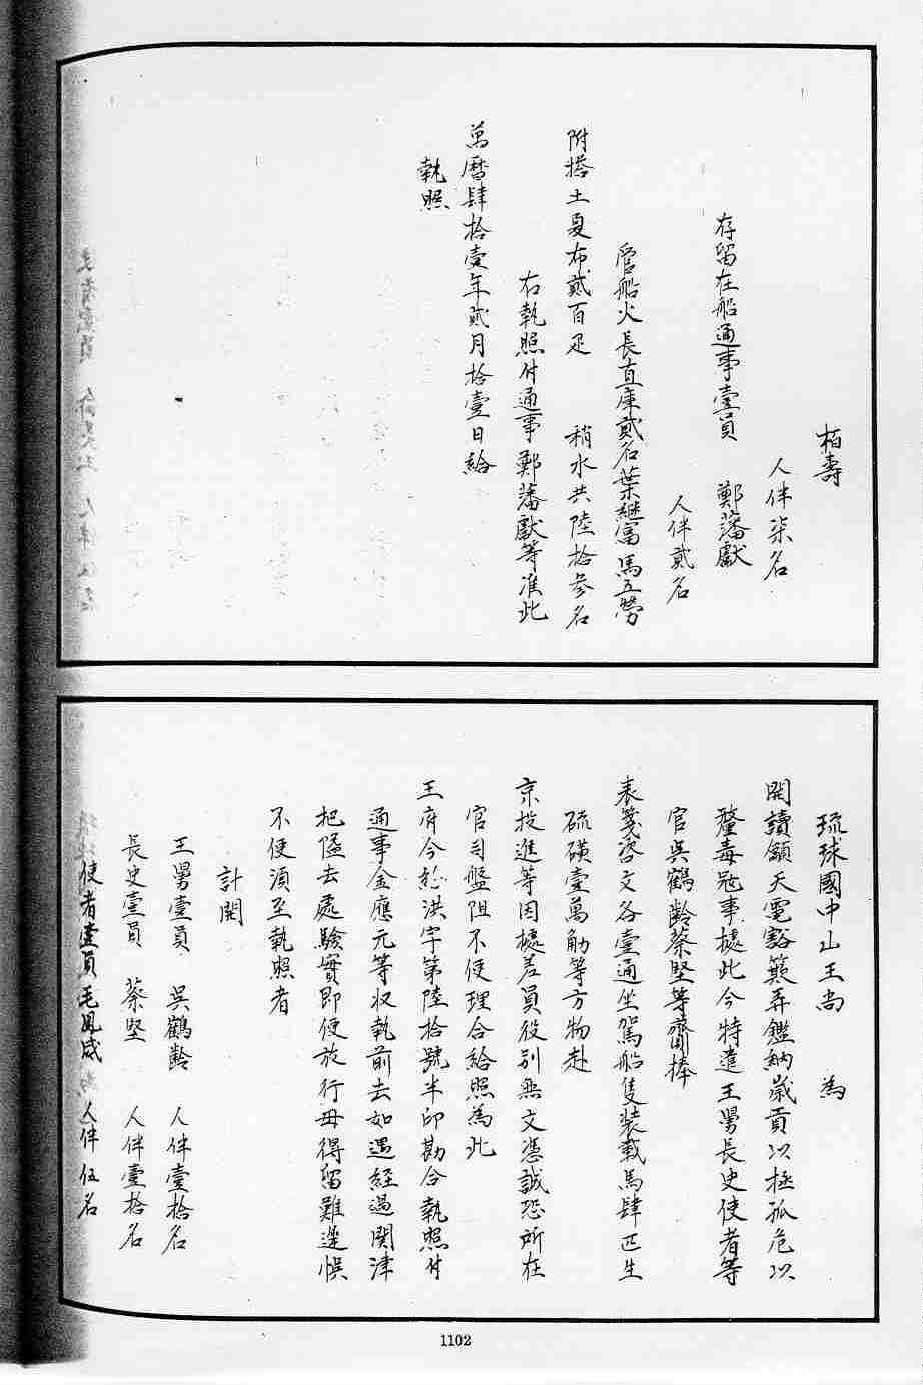 栢壽
人伴柒名
存留在船通事壹員　鄭藩獻
人伴貳名
管船火長直庫貳名葉繼富馬五勞
附搭土夏布貳百疋　稍水共陸拾參名
右執照付通事鄭藩獻等准此
萬曆肆拾壹年貳月拾壹日給
執照
琉球國中山王尚　為
開讀籲天電豁簸弄鑑納歲貢以拯孤危以
釐毒冦事據此今特遣王舅長史使者等
官吳鶴齡蔡堅等齎捧
表箋咨文各壹通坐駕船隻裝載馬肆匹生
硫磺壹萬觔等方物赴
京投進等因據差員役別無文憑誠恐所在
官司盤阻不便理合給照為此
王府今給洪字第陸拾號半印勘合執照付
通事金應元等收執前去如遇經過関津
把隘去處驗實即便放行毋得留難遲悞
不便須至執照者
計開
王舅壹員　吳鶴齡　人伴壹拾名
長史壹員　蔡堅　人伴壹拾名
使者壹員毛鳳威　人伴伍名
1102